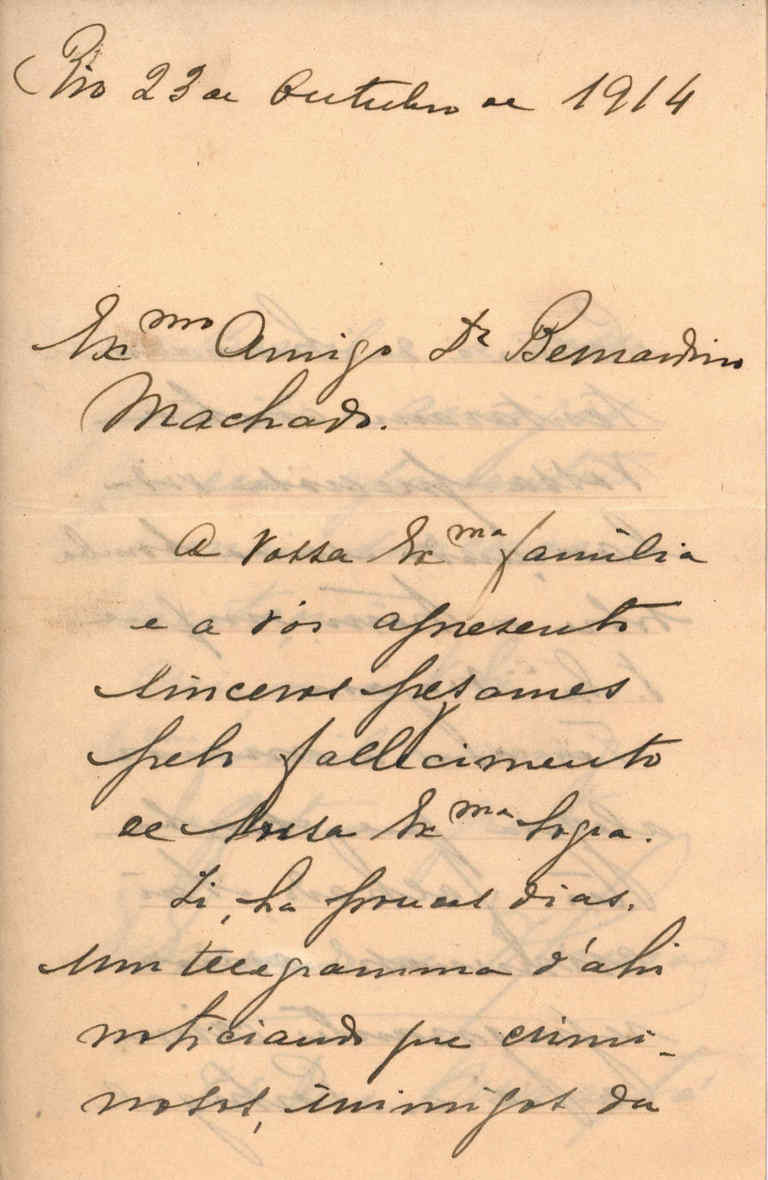 Rio 23 de Outubro de 1914
Ex.mo Amigo Dr Bernardino
Machado.
A Vossa Ex.ma família
e a vós apresento
sinceros pesames
pelo fallecimento
de Vossa Ex.ma Sogra.
Li, ha poucos dias,
um telegramma d'ahi
noticiando que crimi-
nosos, inimigos da